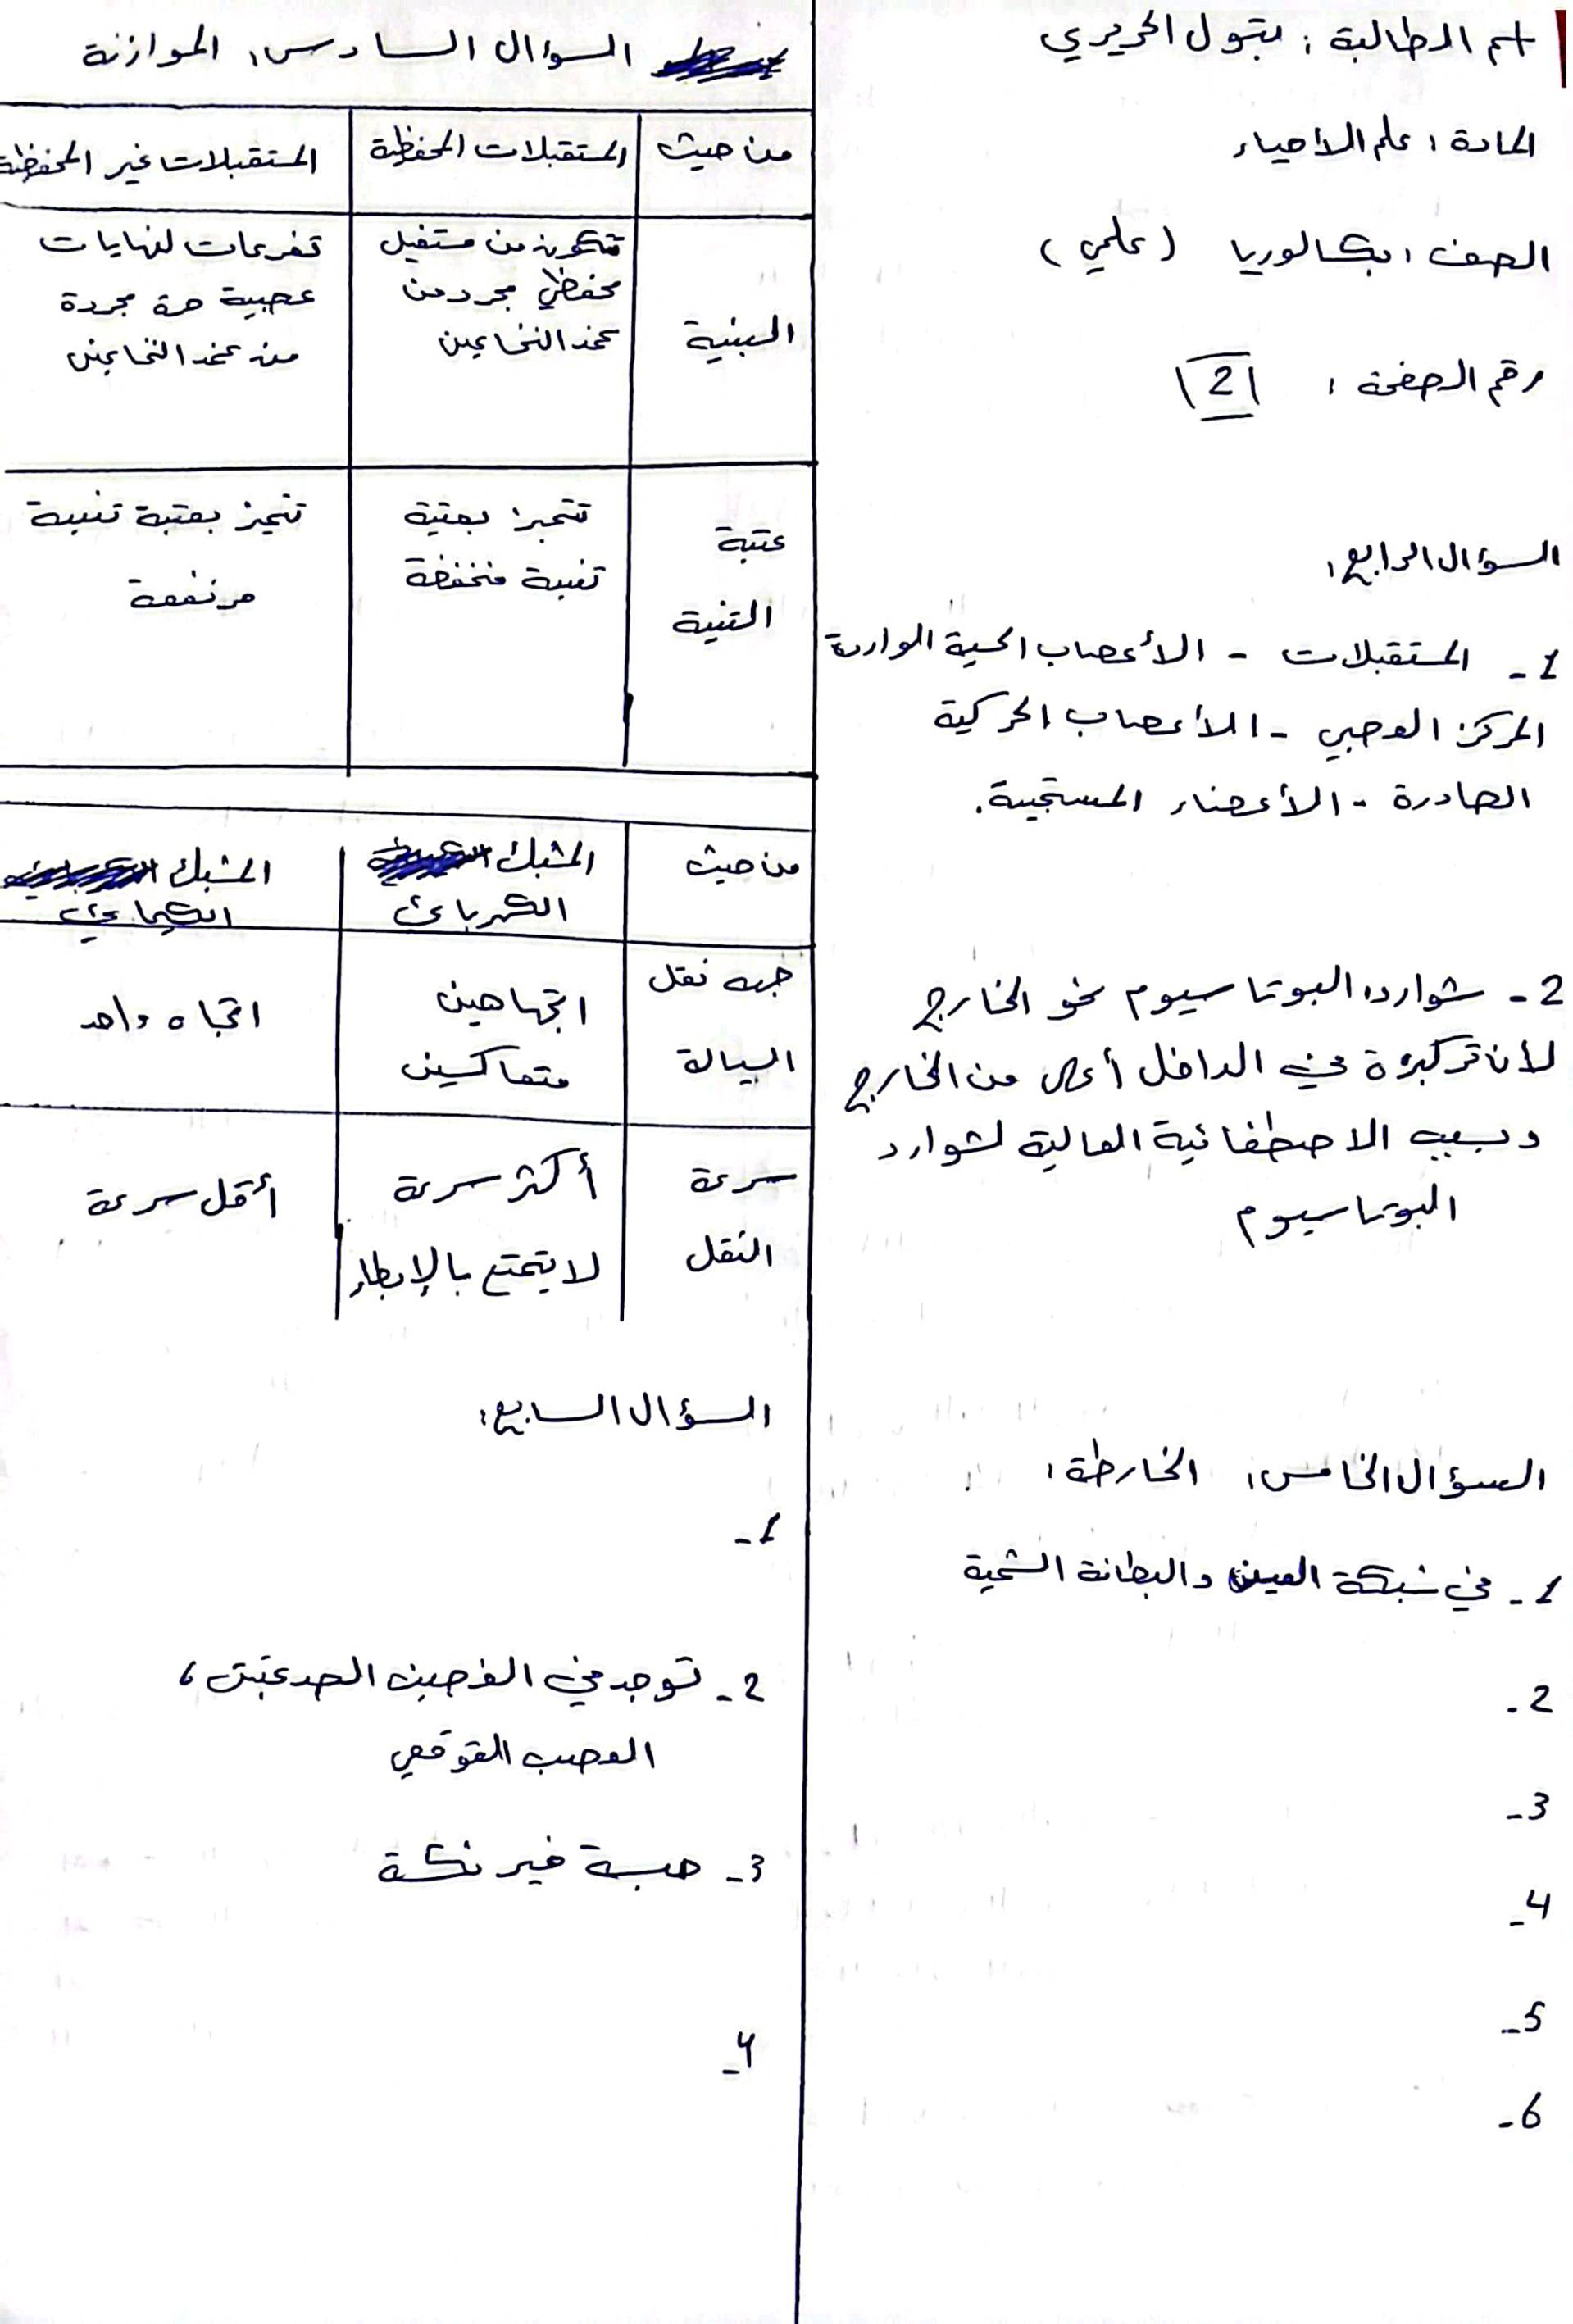 اسم الطالبة : بتول الحريري
المادة : علم الأحياء
الصف : بكالوريا (علمي)
رقم الصفحة : 2
السؤال الرابع :
1- المستقبلات - الأعصاب الحسية الواردة
المركز العصبي - الأعصاب الحركية
الصادرة - الأعضاء المستجيبة.
2- شوارد البوتاسيوم نحو الخارج
لأن تركيزه في الداخل أعلى من الخارج
وبسبب الاصطفائية العالية لشوارد
البوتاسيوم
السؤال الخامس : الخارطة :
1- في شبكة العين والبطانة الشمية
2-
3-
4-
5-
6-
السؤال السادس : الموازنة
من حيث | المستقبلات المحفظية | المستقبلات غير المحفظية
البنية | تتكون من مستقبل | تفرعات لنهايات
محفظي مجرد من | عصبية حرة مجردة
غمد النخاعين | من غمد النخاعين
عتبة | تتميز بعتبة | تتميز بعتبة تنبيه
التنبيه | تنبيه منخفضة | مرتفعة
من حيث | المشبك | المشبك
الكهربائي | الكيميائي
جهه نقل | اتجاهين | اتجاه واحد
السيالة | متعاكسين
سرعة | أكثر سرعة | أقل سرعة
النقل | لا يتمتع بالإبطاء
السؤال السابع :
1-
2- توجد في الفصين الصدغيين ،
العصب القوقعي
3- حسية
4-